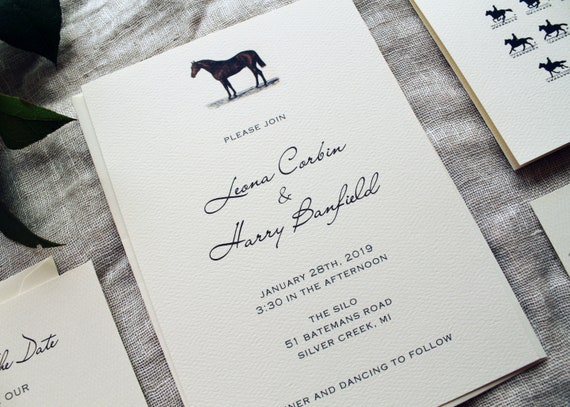 PLEASE JOIN
Leona Corbin
&
Harry Banfield
JANUARY 28TH, 2019
3:30 IN THE AFTERNOON
THE SILO
51 BATEMANS ROAD
SILVER CREEK, MI
AND DANCING TO FOLLOW
the Date
OUR